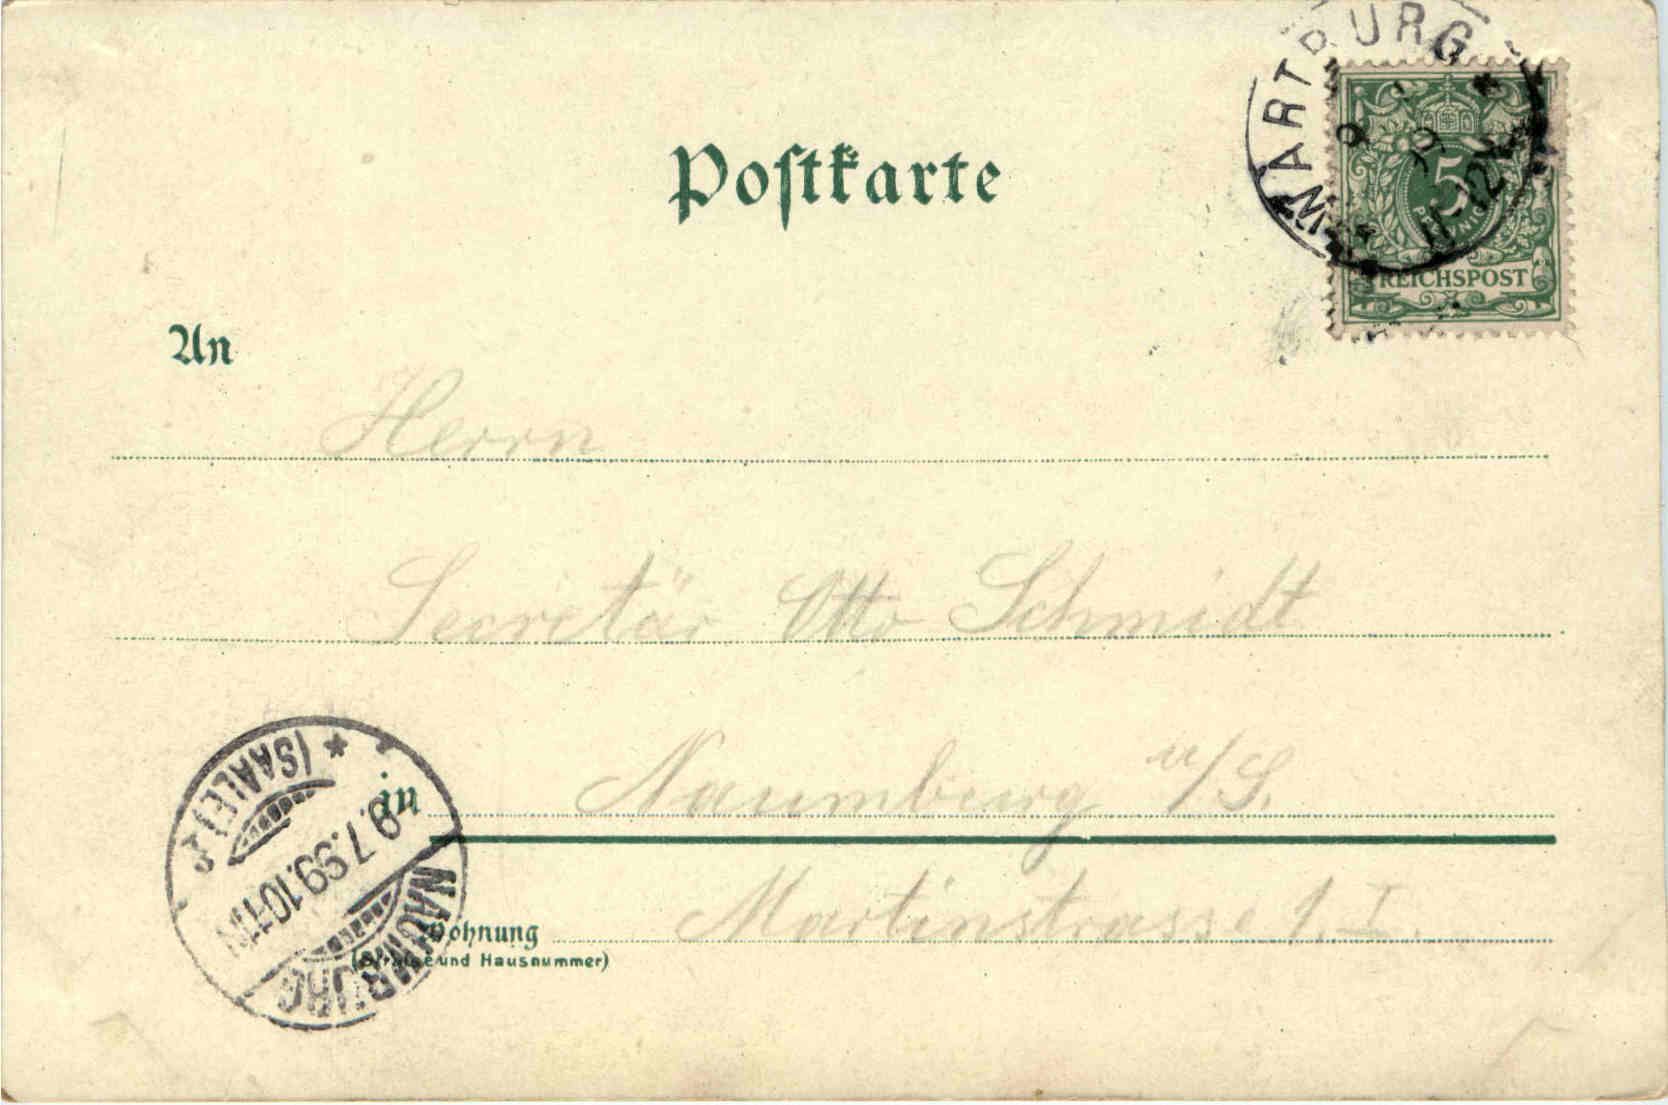 WARTBURG
9 7 99
11-12V
Postkarte
5
PFENNIG
REICHSPOST
An
Herrn
Secretär Otto Schmidt
in Naumburg a/S.
Martinstrasse 1. I.
Wohnung
(Strasse und Hausnummer)
NAUMBURG
-9.7.99.10-11N
* (SAALE) 1